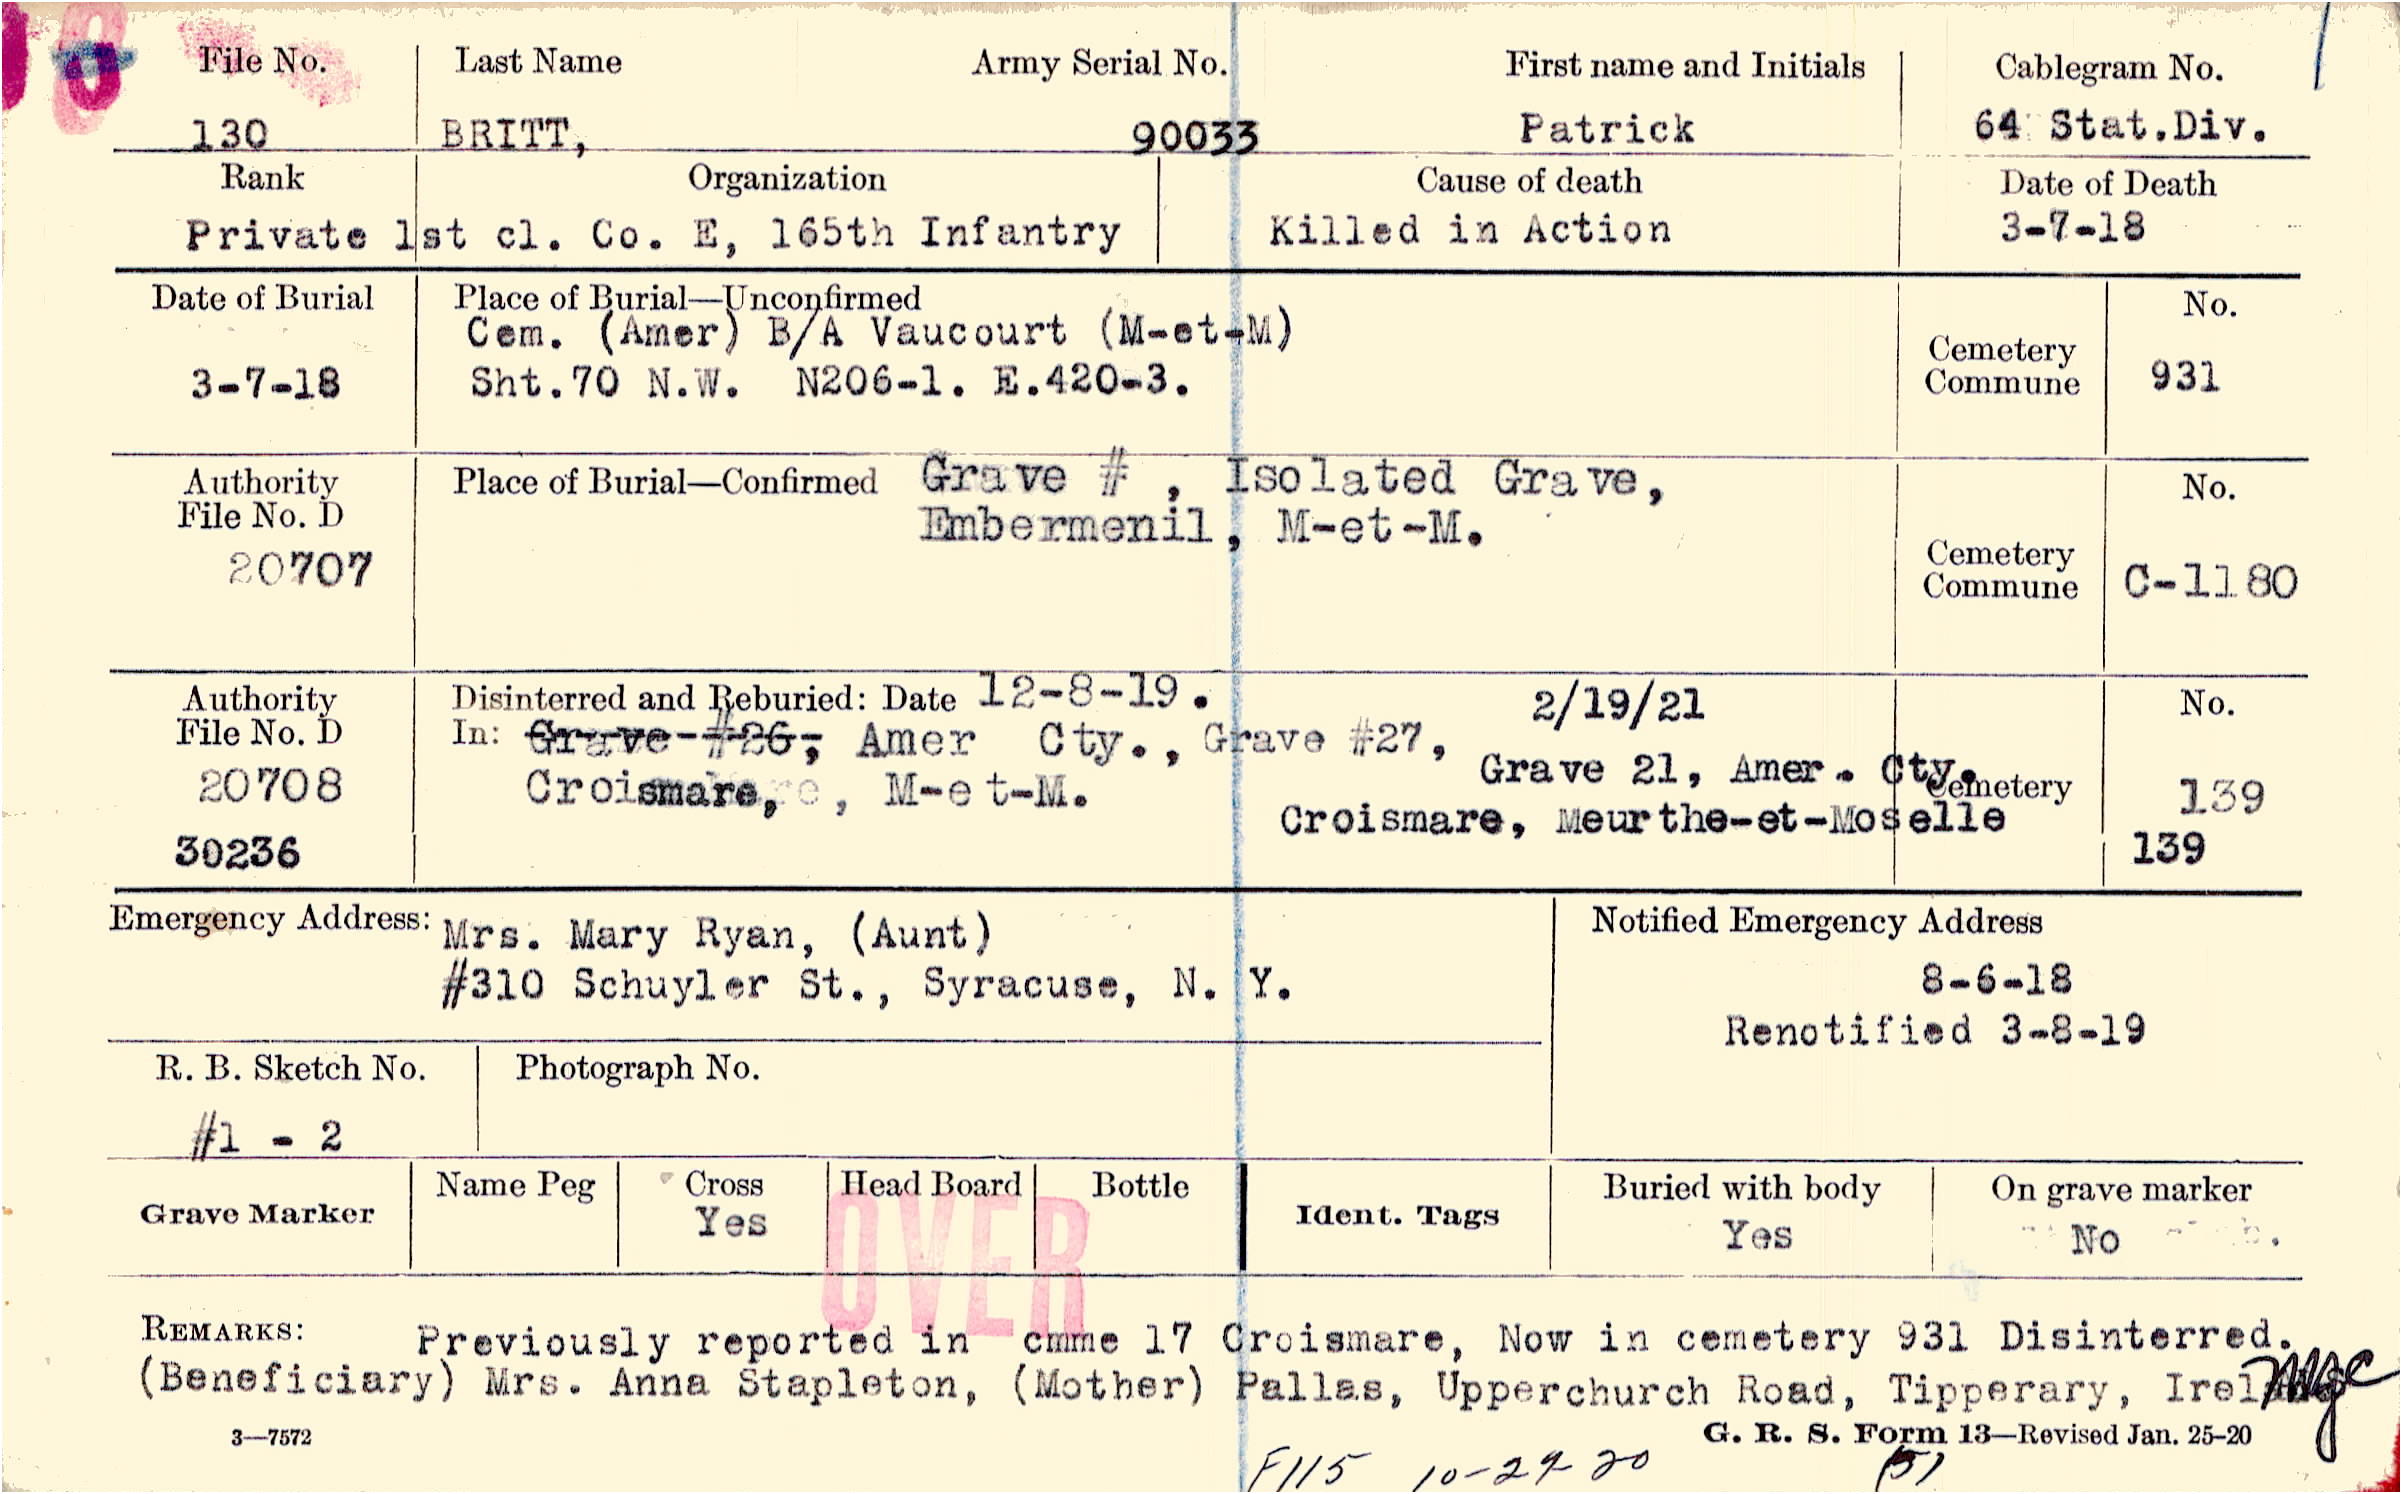 File No. Last Name Army Serial No. First name and Initials Cablegram No.
130 BRITT, 90033 Patrick 64 Stat.Div.
Rank Organization Cause of death Date of Death
Private 1st cl. Co. E, 165th Infantry Killed in Action 3-7-18
Date of Burial Place of Burial—Unconfirmed No.
Cem. (Amer) B/A Vaucourt (M-et-M)
3-7-18 Sht.70 N.W. N206-1. E.420-3. Cemetery Commune 931
Authority File No. D Place of Burial—Confirmed Grave # , Isolated Grave, No.
Embermenil, M-et-M.
20707 Cemetery Commune C-1180
Authority File No. D Disinterred and Reburied: Date 12-8-19. 2/19/21 No.
In: Grave #26, Amer Cty., Grave #27,
Grave 21, Amer. Cty.
20708 Croismare, M-et-M. Cemetery 139
Croismare, Meurthe-et-Moselle
30236 139
Emergency Address: Mrs. Mary Ryan, (Aunt) Notified Emergency Address
#310 Schuyler St., Syracuse, N. Y. 8-6-18
Renotified 3-8-19
R. B. Sketch No. Photograph No.
#1 - 2
Grave Marker Name Peg Cross Head Board Bottle Ident. Tags Buried with body On grave marker
Yes Yes No
OVER
REMARKS: Previously reported in cmme 17 Croismare, Now in cemetery 931 Disinterred.
(Beneficiary) Mrs. Anna Stapleton, (Mother) Pallas, Upperchurch Road, Tipperary,
3—7572 G. R. S. Form 13—Revised Jan. 25-20
F115 10-29-20 (5)